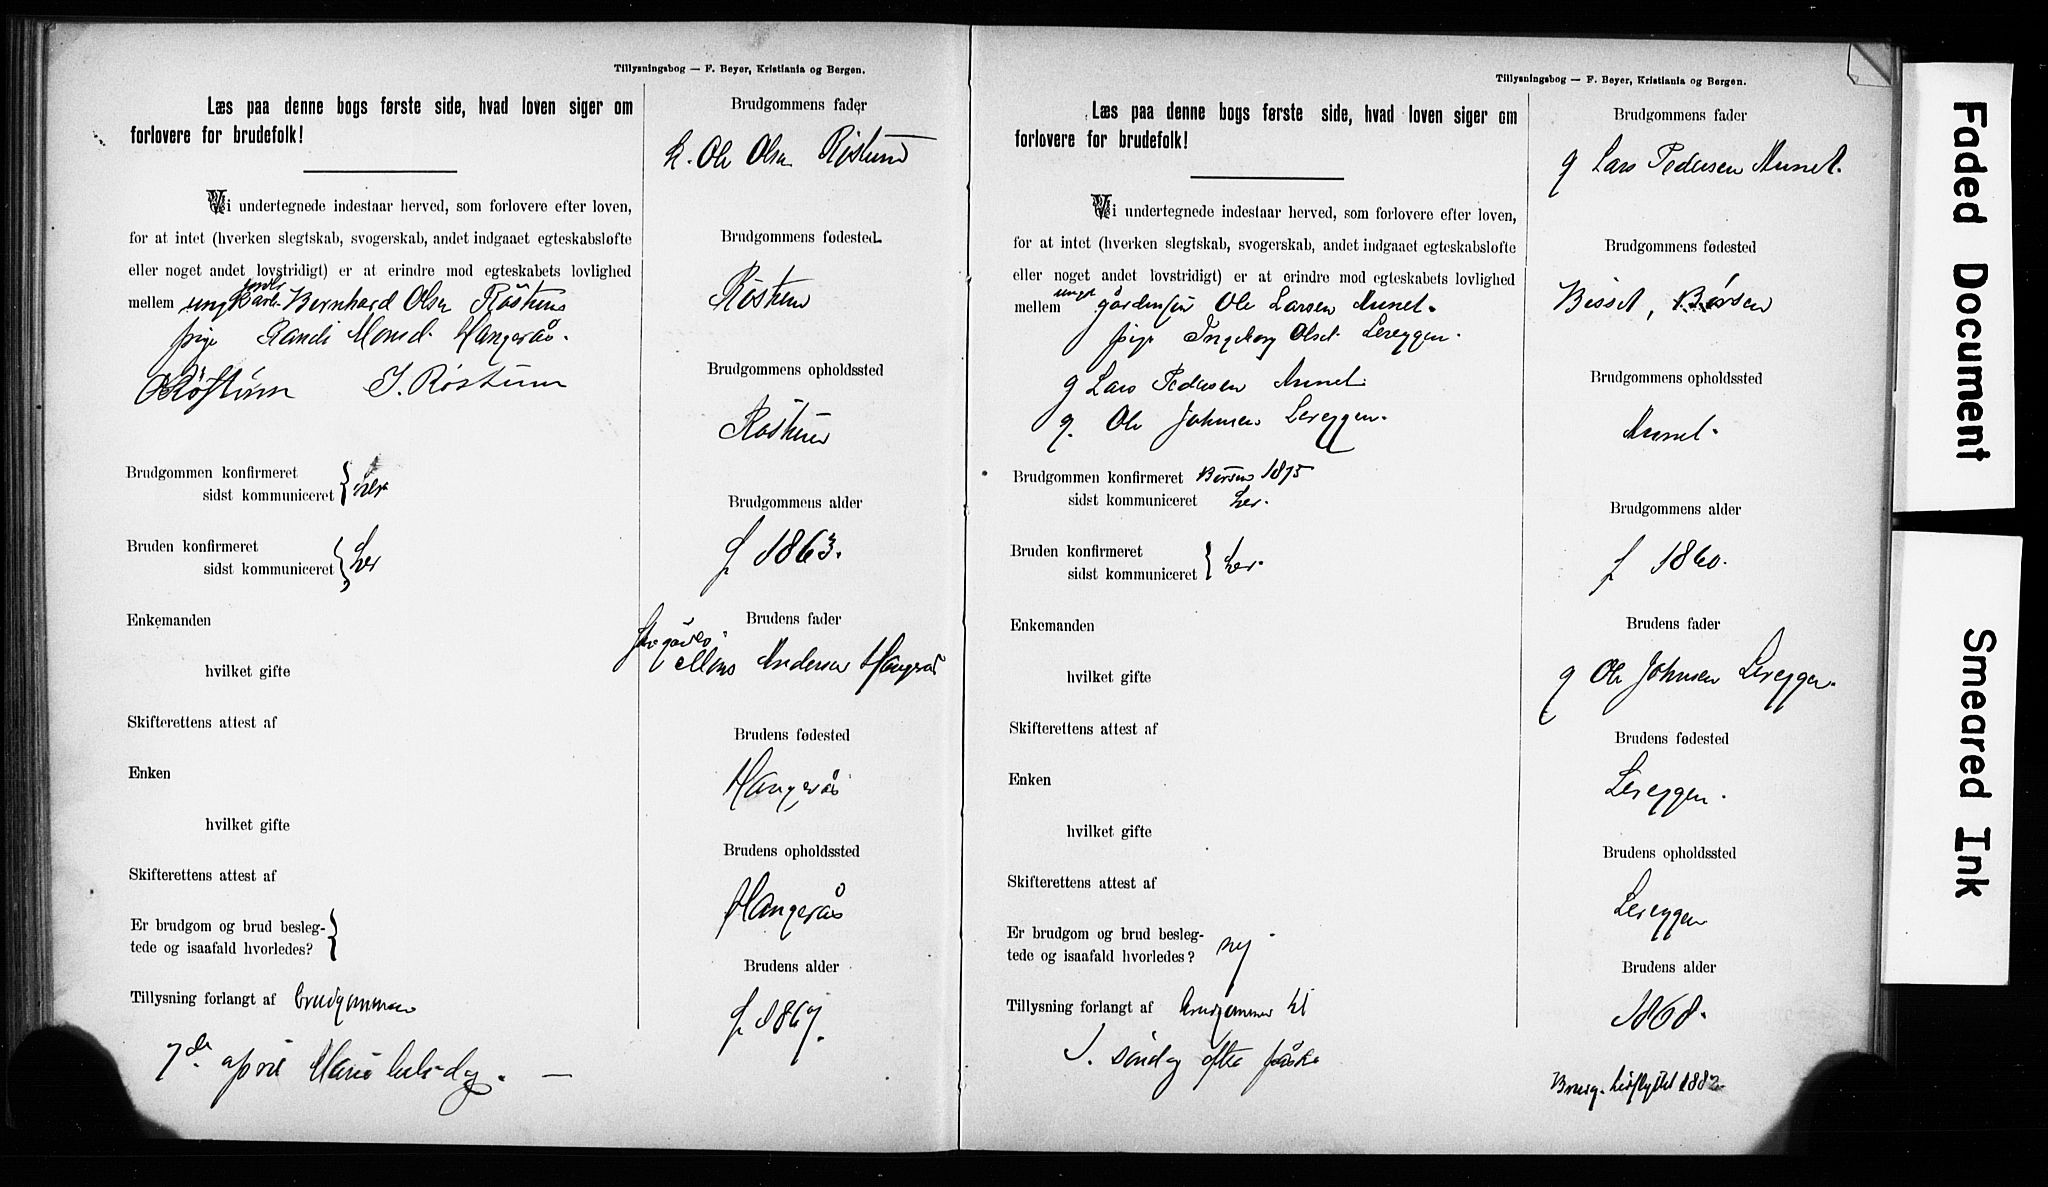 Tillysningsbog — F. Beyer, Kristiania og Bergen.
Læs paa denne bogs første side, hvad loven siger om
forlovere for brudefolk!
Vi undertegnede indestaar herved, som forlovere efter loven,
for at intet (hverken slegtskab, svogerskab, andet indgaaet egteskabsløfte
eller noget andet lovstridigt) er at erindre mod egteskabets lovlighed
mellem ungkarl Bernhard Olsen Röstum
pige Randi Monsd. Hangerås.
Röstum J. Röstum
Brudgommen konfirmeret
sidst kommuniceret } her
Bruden konfirmeret
sidst kommuniceret } her
Enkemanden
hvilket gifte
Skifterettens attest af
Enken
hvilket gifte
Skifterettens attest af
Er brudgom og brud besleg-
tede og isaafald hvorledes? }
Tillysning forlangt af brudgommen
7de april Mariæ
Brudgommens fader
Ole Olsen Röstum
Brudgommens fødested
Röstum
Brudgommens opholdssted
Röstum
Brudgommens alder
f 1863.
Brudens fader
Mons Andersen Hangerås
Brudens fødested
Hangerås
Brudens opholdssted
Hangerås
Brudens alder
f 1867.
Tillysningsbog — F. Beyer, Kristiania og Bergen.
Læs paa denne bogs første side, hvad loven siger om
forlovere for brudefolk!
Vi undertegnede indestaar herved, som forlovere efter loven,
for at intet (hverken slegtskab, svogerskab, andet indgaaet egteskabsløfte
eller noget andet lovstridigt) er at erindre mod egteskabets lovlighed
mellem Ole Larsen Aunet.
pige Ingeborg Olsd. Lereggen.
g Lars Pedersen Aunet
g. Ole Johnsen Lereggen.
Brudgommen konfirmeret Børsen 1875
sidst kommuniceret her.
Bruden konfirmeret
sidst kommuniceret } her.
Enkemanden
hvilket gifte
Skifterettens attest af
Enken
hvilket gifte
Skifterettens attest af
Er brudgom og brud besleg-
tede og isaafald hvorledes? nej
Tillysning forlangt af brudgommen til
1. søndag efter påske
Brudgommens fader
g Lars Pedersen Aunet.
Brudgommens fødested
Børsen
Brudgommens opholdssted
Aunet.
Brudgommens alder
f 1860.
Brudens fader
g Ole Johnsen Lereggen.
Brudens fødested
Lereggen.
Brudens opholdssted
Lereggen
Brudens alder
1868.
Brudg. hidflyttet 1882
Faded Document
Smeared Ink